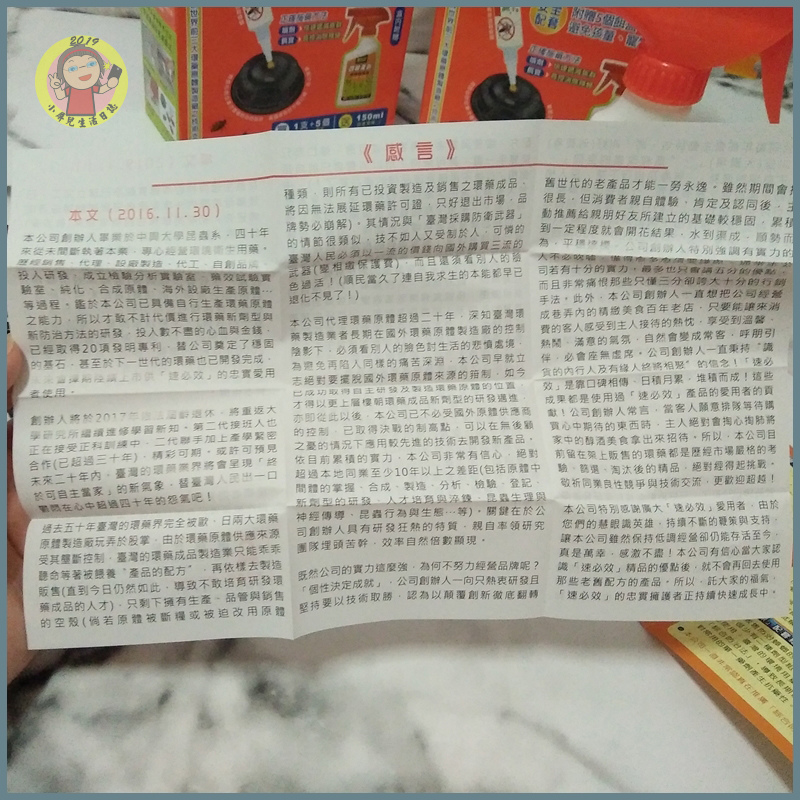 2019
小屏兒生活日誌
150ml
《感言》
本文(2016.11.30)
本公司創辦人畢業於中興大學昆蟲系,四十年
來從未間斷執著本業,專心經營環境衛生用藥。
歷經銷售、代理、設廠製造、代工、自創品牌、
投入研發、成立檢驗分析實驗室、藥效試驗實
驗室、純化、合成原體、海外設廠生產原體…
等過程。鑑於本公司已具備自行生產環藥原體
之能力,所以才敢不計代價進行環藥新劑型與
新防治方法的研發,投入數不盡的心血與金錢,
已經取得20項發明專利,替公司奠定了穩固
的基石,甚至於下一世代的環藥也已開發完成,
「速必效」的忠實愛用
者使用。
創辦人將於2017年 退休,將重返大
學研究所繼續進修學習新知。第二代接班人也
正在接受正科訓練中,二代聯手加上產學緊密
合作(已超過三十年),精彩可期。或許可預見
未來二十年內,臺灣的環藥業界將會呈現「終
於可自主當家」的新氣象,替臺灣人民出一口
鬱悶在心中超過四十年的怨氣吧!
過去五十年臺灣的環藥界完全被歐、日兩大環藥
原體製造廠玩弄於股掌,由於環藥原體供應來源
受其壟斷控制,臺灣的環藥成品製造業只能乖乖
聽命等著被餵養“產品的配方”,再依樣去製造
販售(直到今日仍然如此,導致不敢培育研發環
藥成品的人才),只剩下擁有生產、品管與銷售
的空殼(倘若原體被斷糧或被迫改用原體
種類,則所有已投資製造及銷售之環藥成品,
將因無法展延環藥許可證,只好退出市場,品
牌勢必崩解)。其情況與「臺灣採購防衛武器」
的情節很類似,技不如人又受制於人,可憐的
臺灣人民必須以一流的價錢向國外購買三流的
武器(變相繳保護費),而且還須看別人的臉
色過活!(順民當久了連自我求生的本能都早已
退化不見了!)
本公司代理環藥原體超過二十年,深知臺灣
環藥製造業者長期在國外環藥原體製造廠的控制
陰影下,必須看別人的臉色討生活的悲憤處境,
為避免再陷入同樣的痛苦深淵,本公司早就立
志絕對要擺脫國外環藥原體來源的箝制,如今
已成功取得自主研發及製造環藥原體的位置,
才得以更上層樓朝環藥成品新劑型的研發邁進,
亦即從此以後,本公司已不必受國外原體供應商
的控制,已取得決戰的制高點,可以在無後顧
之憂的情況下應用較先進的技術去開發新產品。
依目前累積的實力,本公司非常有信心,絕對
超過本地同業至少10年以上之差距(包括原體中
間體的掌握、合成、製造、分析、檢驗、登記、
新劑型的研發、人才培育與淬鍊、昆蟲生理與
神經傳導、昆蟲行為與生態…等)。關鍵在於公
司創辦人具有研發狂熱的特質,親自率領研究
團隊埋頭苦幹,效率自然倍數顯現。
既然公司的實力這麼強,為何不努力經營品牌呢?
「個性決定成就」,公司創辦人一向只熱衷研發且
堅持要以技術取勝,認為以顛覆創新徹底翻轉
舊世代的老產品才能一勞永逸。雖然期間會拖
很長,但消費者親自體驗、肯定及認同後,主
動推薦給親朋好友所建立的基礎較穩固,累積
到一定程度就會開花結果,水到渠成,順勢而
為,平穩遠播。公司創辦人特別強調有實力的
人不必吹噓,
司若有十分的實力,最多也只會講五分的優點,
而且非常痛恨那些只懂三分卻誇大十分的行銷
手法。此外,本公司創辦人一直想把公司經營
成巷弄內的精緻美食百年老店,只要能讓來消
費的客人感受到主人接待的熱忱,享受到溫馨、
熱鬧、滿意的氣氛,自然會變成常客,呼朋引
伴,必會座無虛席。公司創辦人一直秉持“識
貨的內行人及有緣人終將相聚”的信念!「速必
效」是靠口碑相傳,日積月累,堆積而成!這些
成果都是使用過「速必效」產品的愛用者的貢
獻!公司創辦人常言,當客人願意排隊等待購
買心中期待的東西時,主人絕對會掏心掏肺將
家中的醇酒美食拿出來招待。所以,本公司目
前留在架上販售的環藥都是歷經市場嚴格的考
驗、篩選、淘汰後的精品,絕對經得起挑戰,
敬祈同業良性競爭與技術交流,更歡迎超越!
本公司特別感謝廣大「速必效」愛用者,由於
您們的慧眼識英雄,持續不斷的鞭策與支持,
讓本公司雖然保持低調經營卻仍能存活至今,
真是萬幸,感激不盡!本公司有信心當大家認
識「速必效」精品的優點後,就不會再回去使用
那些老舊配方的產品。所以,託大家的福氣,
「速必效」的忠實擁護者正持續快速成長中。